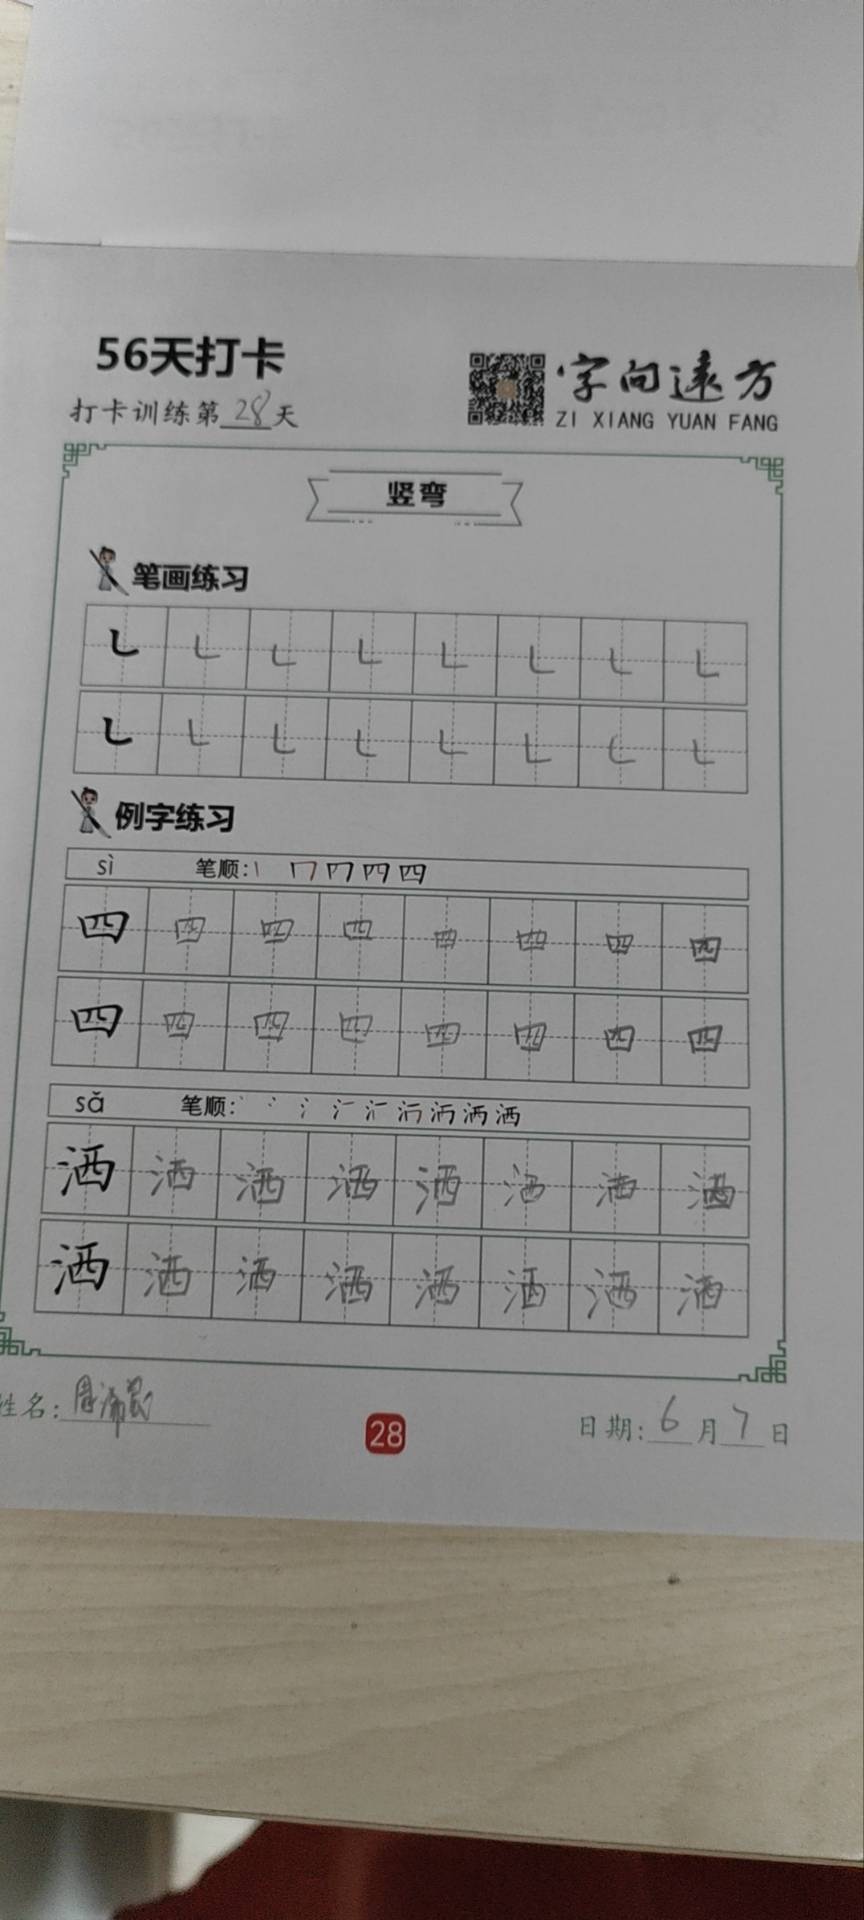 56天打卡
打卡训练第28天
字向远方
ZI XIANG YUAN FANG
竖弯
笔画练习
㇄ ㇄ ㇄ ㇄ ㇄ ㇄ ㇄ ㇄
㇄ ㇄ ㇄ ㇄ ㇄ ㇄ ㇄ ㇄
例字练习
sì 笔顺: 四
四 四 四 四 四 四 四 四
四 四 四 四 四 四 四 四
sǎ 笔顺: 洒
洒 洒 洒 洒 洒 洒 洒 洒
洒 洒 洒 洒 洒 洒 洒 洒
姓名:
28
日期: 6月7日